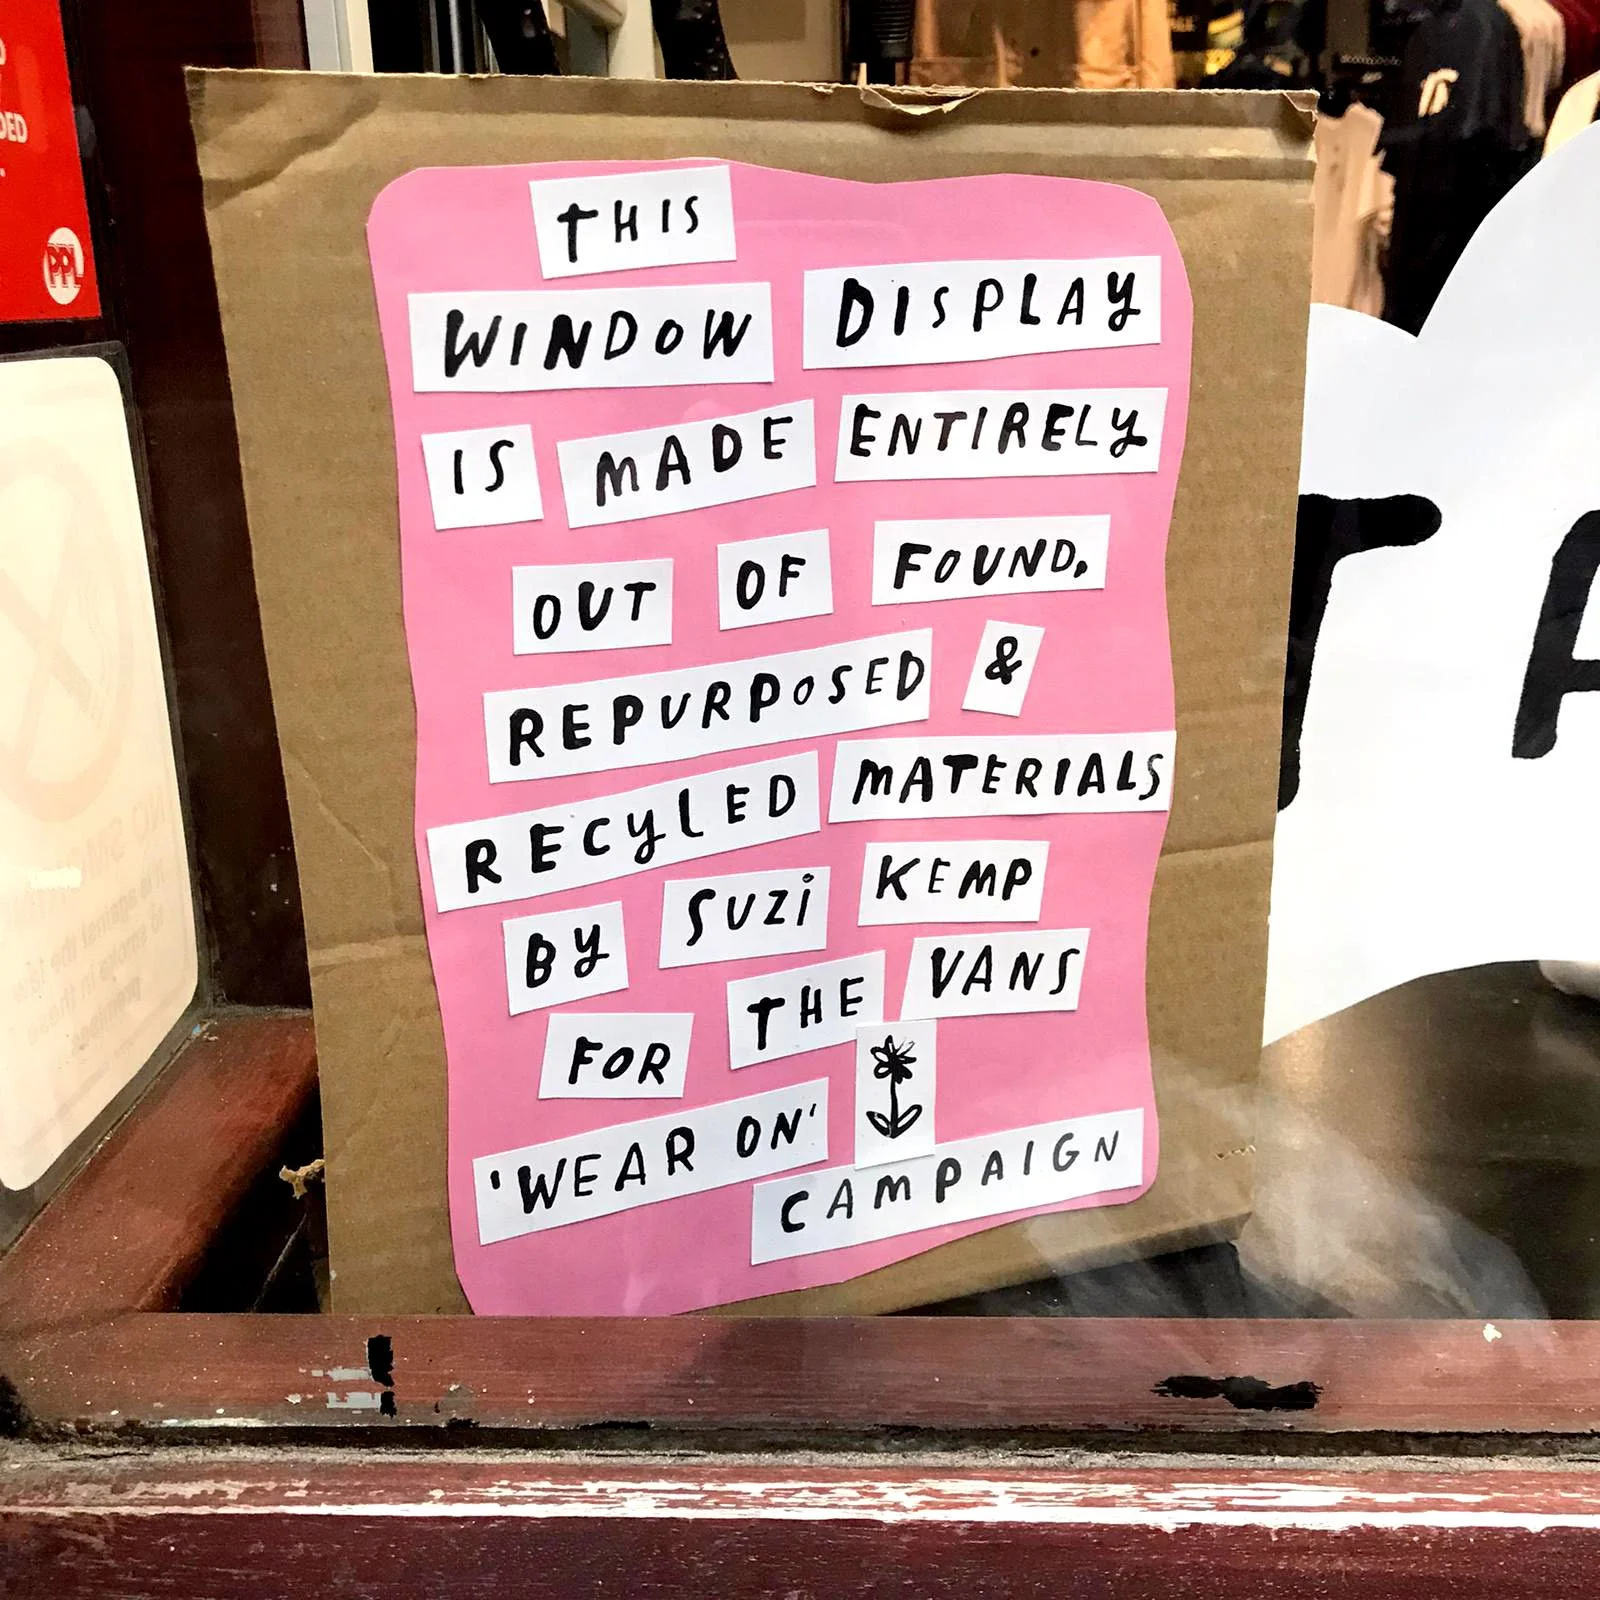 THIS
WINDOW DISPLAY
IS MADE ENTIRELY
OUT OF FOUND,
REPURPOSED &
RECYLED MATERIALS
BY SUZI KEMP
FOR THE VANS
'WEAR ON'
CAMPAIGN
PPL
NO
it is against the law
to smoke in these
premises